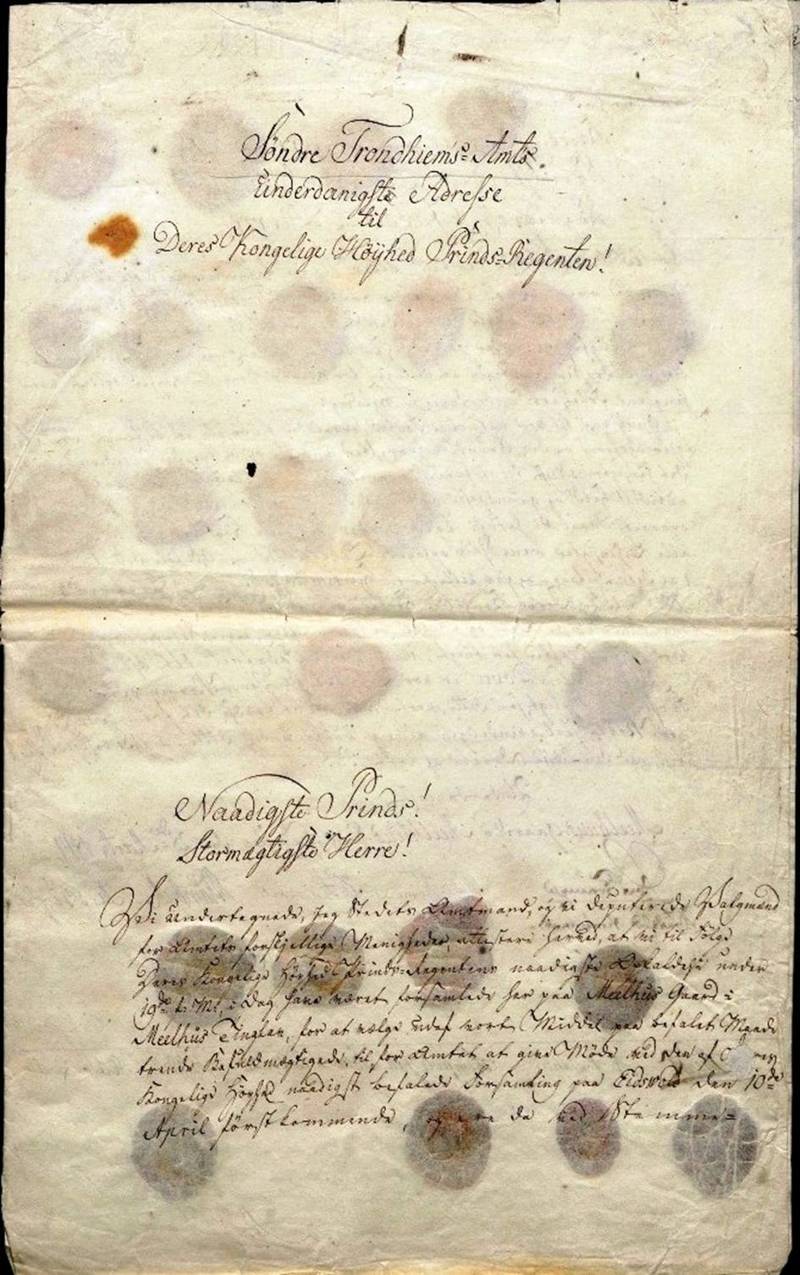 Søndre Trondhiems-Amts
Underdanigste Adresse
til
Deres Kongelige Høyhed Prinds-Regenten!
Naadigste Prinds!
Stormægtigste Herre!
Vi undertegnede, jeg Stedets Amtmand, og vi deputerede Valgmænd
for Amtets forskjellige Menigheder, attestere herved, at vi til Følge
Deres Kongelige Høyhed Prinds-Regentens naadigste Befaling under
19de f. M., i Dag have været forsamlede her paa Meelhuus Gaard i
Meelhuus Tinglav, for at vælge udaf vort Middel paa befalet Maade
trende Befuldmægtigede, til for Amtet at give Møde ved den af
Kongelige Høyhed naadigst befalede Forsamling paa Eidsvold den 10de
April førstkommende, og ere da ved Stemme-